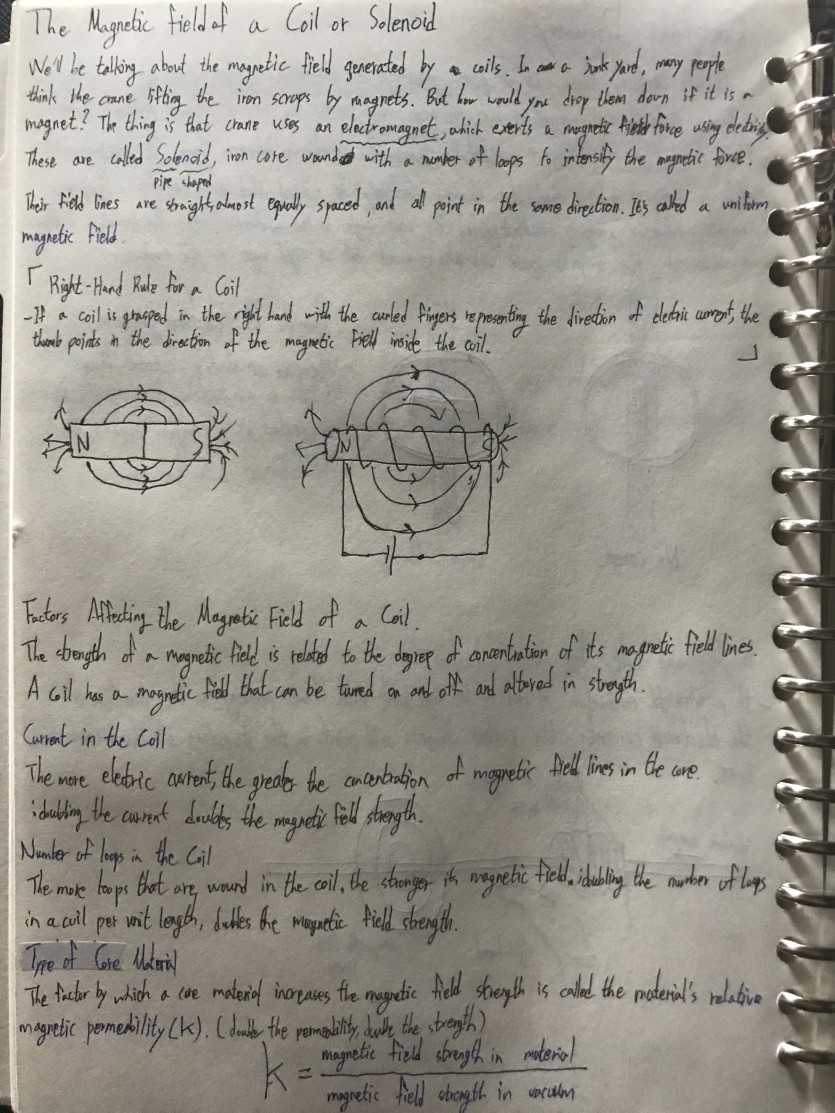 The Magnetic field of a Coil or Solenoid
We'll be talking about the magnetic field generated by coils. In a junk yard, many people
think the crane lifting the iron scraps by magnets. But how would you drop them down if it is a
magnet? The thing is that crane uses an electromagnet, which exerts a magnetic force using electricity.
These are called Solenoid, iron core wound with a number of loops to intensify the magnetic force.
pipe shaped
Their field lines are straight, almost equally spaced, and all point in the same direction. It's called a uniform
magnetic field.
「 Right-Hand Rule for a Coil
-If a coil is grasped in the right hand with the curled fingers representing the direction of electric current, the
thumb points in the direction of the magnetic field inside the coil.
」
N S
N S
Factors Affecting the Magnetic Field of a Coil.
The strength of a magnetic field is related to the degree of concentration of its magnetic field lines.
A coil has a magnetic field that can be turned on and off and altered in strength.
Current in the Coil
The more electric current, the greater the concentration of magnetic field lines in the core.
: doubling the current doubles the magnetic field strength.
Number of loops in the Coil
The more loops that are wound in the coil, the stronger its magnetic field. : doubling the number of loops
in a coil per unit length, doubles the magnetic field strength.
Type of Core Material
The factor by which a core material increases the magnetic field strength is called the material's relative
magnetic permeability (K). (double the permeability, double the strength)
K = magnetic field strength in material
magnetic field strength in vacuum